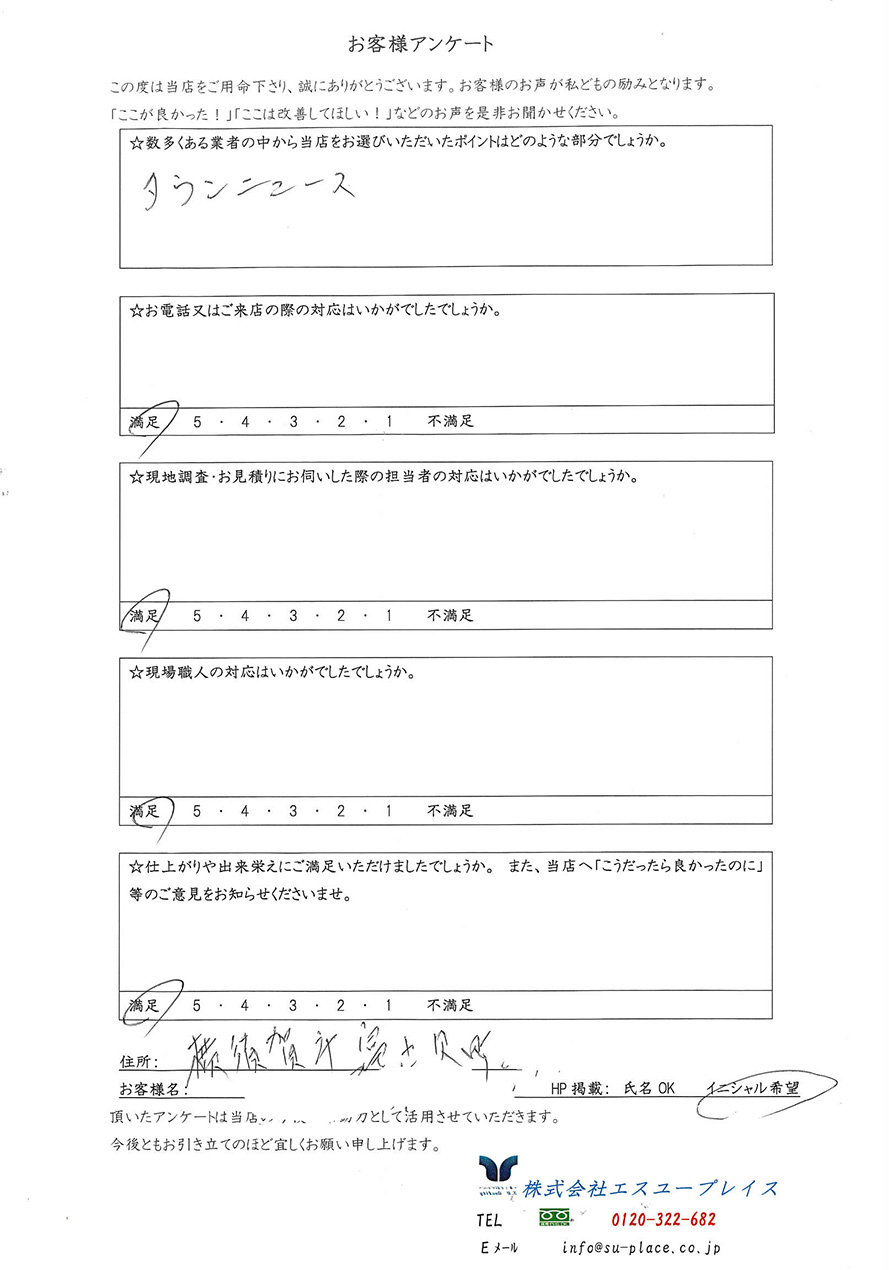 お客様アンケート
この度は当店をご用命下さり、誠にありがとうございます。お客様のお声が私どもの励みとなります。
「ここが良かった！」「ここは改善してほしい！」などのお声を是非お聞かせください。
☆数多くある業者の中から当店をお選びいただいたポイントはどのような部分でしょうか。
タウンニュース
☆お電話又はご来店の際の対応はいかがでしたでしょうか。
満足 5 ・ 4 ・ 3 ・ 2 ・ 1 不満足
☆現地調査・お見積りにお伺いした際の担当者の対応はいかがでしたでしょうか。
満足 5 ・ 4 ・ 3 ・ 2 ・ 1 不満足
☆現場職人の対応はいかがでしたでしょうか。
満足 5 ・ 4 ・ 3 ・ 2 ・ 1 不満足
☆仕上がりや出来栄えにご満足いただけましたでしょうか。 また、当店へ「こうだったら良かったのに」
等のご意見をお知らせくださいませ。
満足 5 ・ 4 ・ 3 ・ 2 ・ 1 不満足
住所: 横須賀市
お客様名: HP掲載: 氏名OK イニシャル希望
頂いたアンケートは当店 として活用させていただきます。
今後ともお引き立てのほど宜しくお願い申し上げます。
株式会社エスユープレイス
TEL 0120-322-682
Eメール info@su-place.co.jp